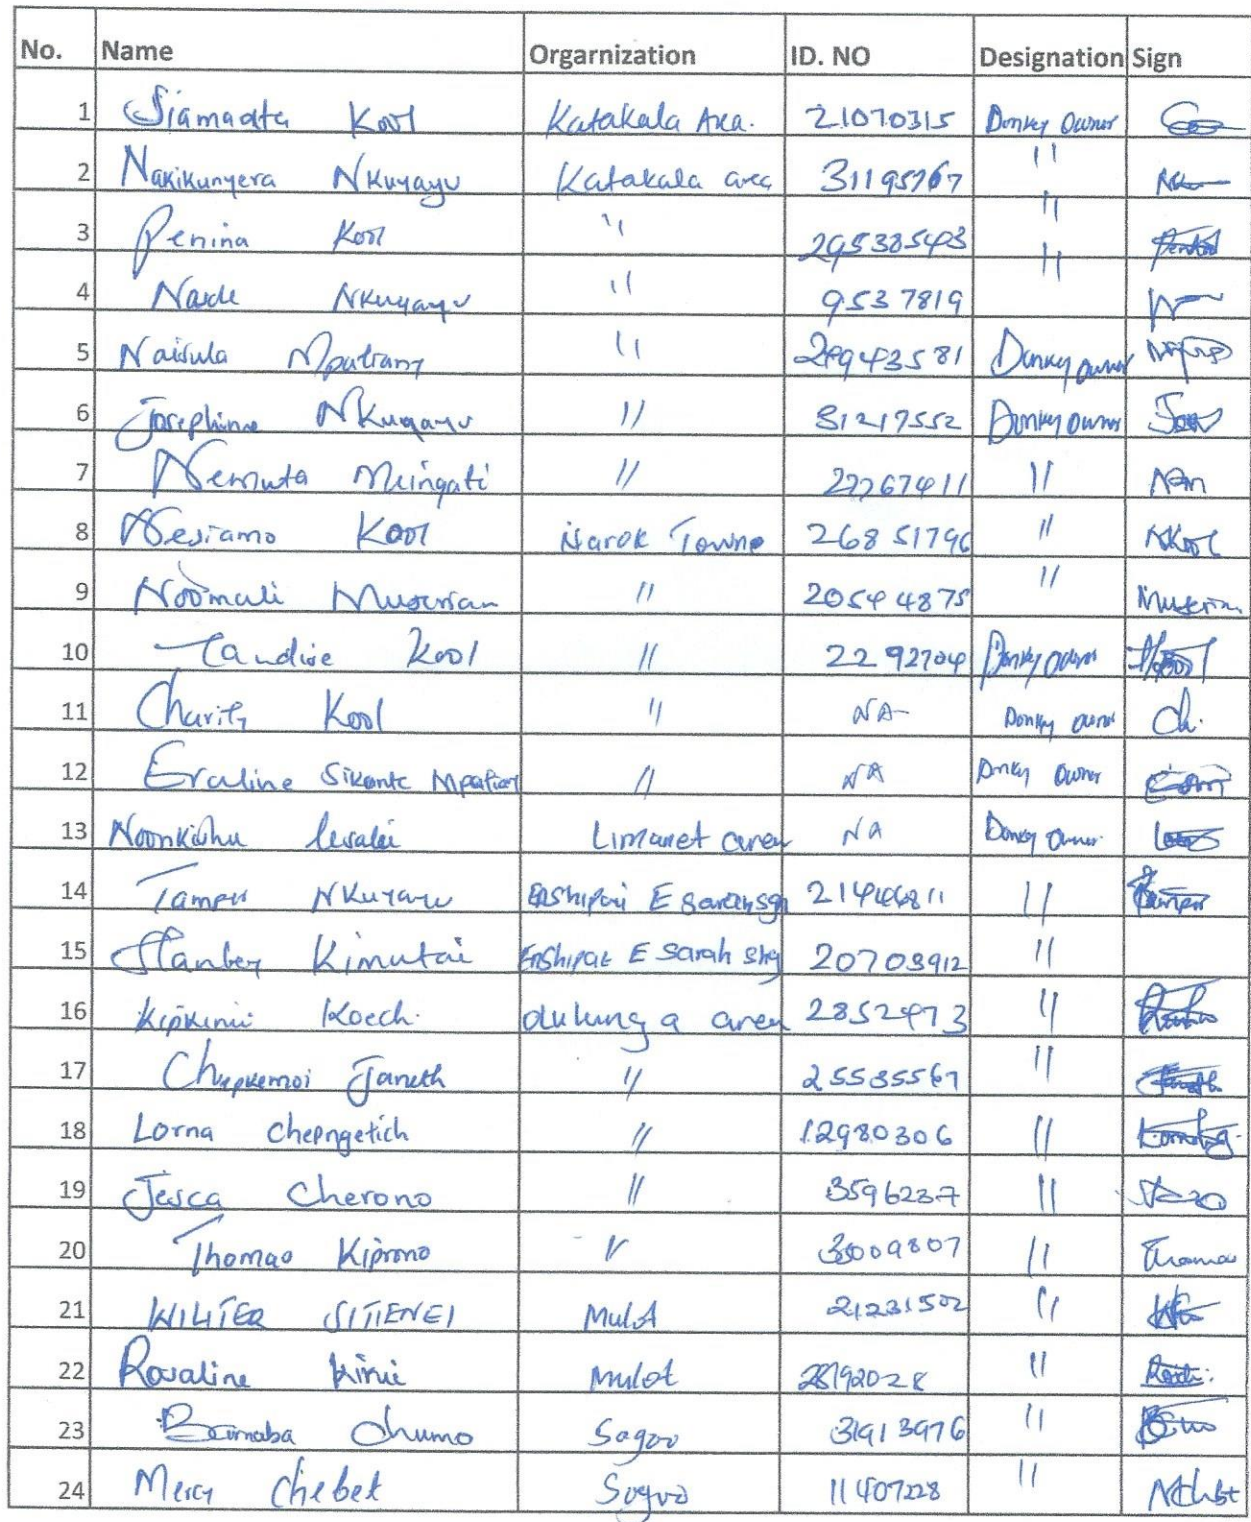 No. Name Orgarnization ID. NO Designation Sign
1 Siamanta Kool Katakala Area. 21070315 Donkey Owner
2 Nakikunyera Nkuyayu Katakala area 31195767 "
3 Penina Kool " 295385493 "
4 Nkuyayu " 9537819 "
5 Naisula Mpatiany " Donkey owner
6 Josephine Nkuyayu " 31217552 Donkey owner
7 Nemuta Muingati " 22267411 "
8 Nesiamo Kool Narok Towne 26851796 " NKool
9 Noomali Musurian " 20544875 "
10 Tandise Kool " 2292704 Donkey owner
11 Charity Kool " NA Donkey owner Ch.
12 Eraline Sikante Mpatiany " NA Donkey owner
13 Noonkishu lesalei Limanet area NA Donkey Owner.
14 Nkuyayu "
15 Stanley Kimutai Enshipae E Sarah 20703912 "
16 Koech. area 28524973 "
17 Chepkemoi Janeth " 25535567 "
18 Lorna Chepngetich " 12980306 "
19 Jesca Cherono " 3596237 "
20 Thomas Kiprono " 33009807 " Thomas
21 WILITER SITIENEI Mulot 21231502 "
22 Rosaline Kirui Mulot 28192028 "
23 Barnaba Chumo Sagoo 31913976 "
24 Mercy Chebet Sogoo 11407228 "